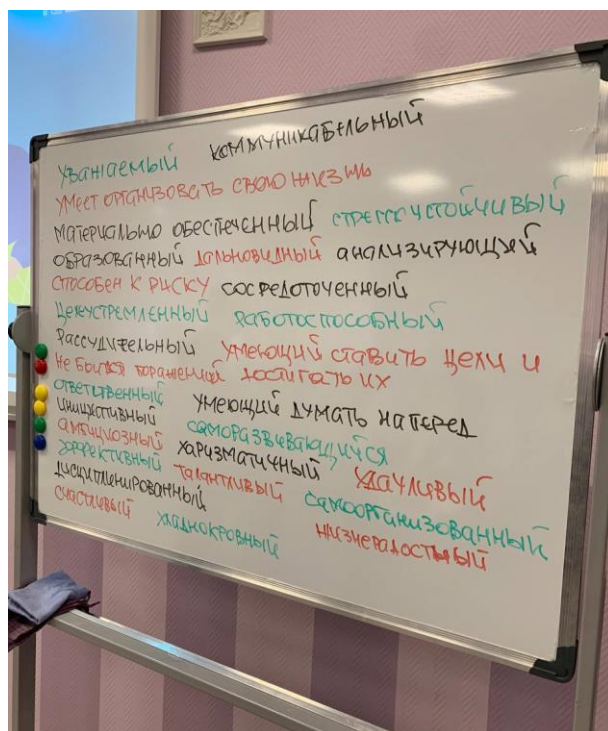 уважаемый коммуникабельный
умеет организовать свою жизнь
материально обеспеченный стрессоустойчивый
образованный дальновидный анализирующий
способен к риску сосредоточенный
целеустремлённый работоспособный
рассудительный умеющий ставить цели и
не боится поражений достигать их
ответственный умеющий думать наперед
инициативный саморазвивающийся
амбициозный харизматичный удачливый
эффективный талантливый самоорганизованный
дисциплинированный жизнерадостный
счастливый хладнокровный